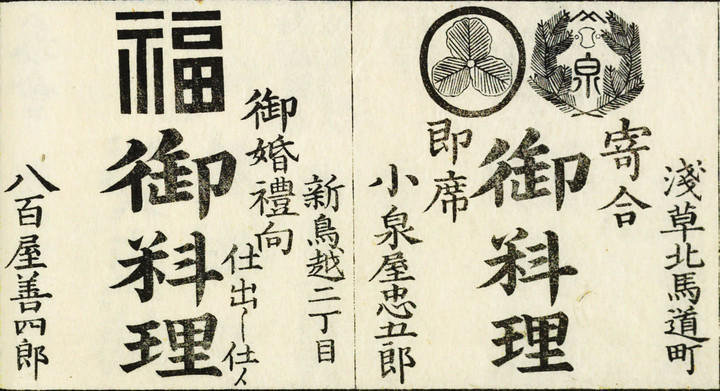 淺草北馬道町
寄合
泉
御料理
即席
小泉屋忠五郎
新鳥越二丁目
御婚禮向
仕出し仕〳〵
福
御料理
八百屋善四郎